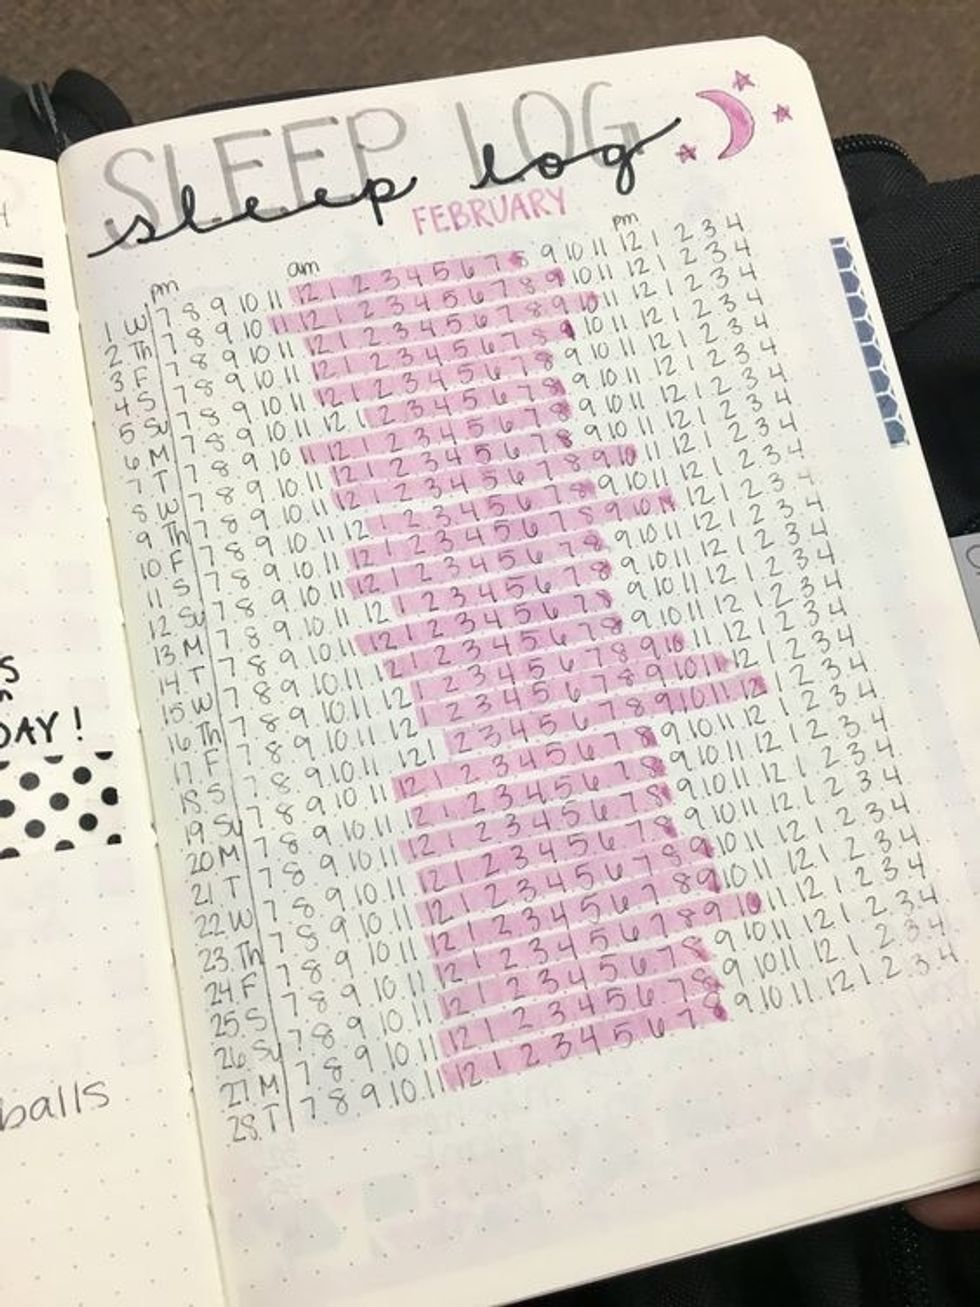 SLEEP LOG
sleep log
FEBRUARY
pm am pm
1 W 7 8 9 10 11 12 1 2 3 4 5 6 7 8 9 10 11 12 1 2 3 4
2 Th 7 8 9 10 11 12 1 2 3 4 5 6 7 8 9 10 11 12 1 2 3 4
3 F 7 8 9 10 11 12 1 2 3 4 5 6 7 8 9 10 11 12 1 2 3 4
4 S 7 8 9 10 11 12 1 2 3 4 5 6 7 8 10 11 12 1 2 3 4
5 Su 7 8 9 10 11 12 1 2 3 4 5 6 7 8 9 10 11 12 1 2 3 4
6 M 7 8 9 10 11 12 1 2 3 4 5 6 7 8 9 10 11 12 1 2 3 4
7 T 7 8 9 10 11 12 1 2 3 4 5 6 7 8 9 10 11 12 1 2 3 4
8 W 7 8 9 10 11 12 1 2 3 4 5 6 7 8 9 10 11 12 1 2 3 4
9 Th 7 8 9 10 11 12 1 2 3 4 5 6 7 8 9 10 11 12 1 2 3 4
10 F 7 8 9 10 11 12 1 2 3 4 5 6 7 8 9 10 11 12 1 2 3 4
11 S 7 8 9 10 11 12 1 2 3 4 5 6 7 8 9 10 11 12 1 2 3 4
12 Su 7 8 9 10 11 12 1 2 3 4 5 6 7 8 9 10 11 12 1 2 3 4
13 M 7 8 9 10 11 12 1 2 3 4 5 6 7 8 9 10 11 12 1 2 3 4
14 T 7 8 9 10 11 12 1 2 3 4 5 6 7 8 9 10 11 12 1 2 3 4
15 W 7 8 9 10 11 12 1 2 3 4 5 6 7 8 9 10 11 12 1 2 3 4
16 Th 7 8 9 10 11 12 1 2 3 4 5 6 7 8 9 10 11 12 1 2 3 4
17 F 7 8 9 10 11 12 1 2 3 4 5 6 7 8 9 10 11 12 1 2 3 4
18 S 7 8 9 10 11 12 1 2 3 4 5 6 7 8 9 10 11 12 1 2 3 4
19 Su 7 8 9 10 11 12 1 2 3 4 5 6 7 8 9 10 11 12 1 2 3 4
20 M 7 8 9 10 11 12 1 2 3 4 5 6 7 8 9 10 11 12 1 2 3 4
21 T 7 8 9 10 11 12 1 2 3 4 5 6 7 8 9 10 11 12 1 2 3 4
22 W 7 8 9 10 11 12 1 2 3 4 5 6 7 8 9 10 11 12 1 2 3 4
23 Th 7 8 9 10 11 12 1 2 3 4 5 6 7 8 9 10 11 12 1 2 3 4
24 F 7 8 9 10 11 12 1 2 3 4 5 6 7 8 9 10 11 12 1 2 3 4
25 S 7 8 9 10 11 12 1 2 3 4 5 6 7 8 9 10 11 12 1 2 3 4
26 Su 7 8 9 10 11 12 1 2 3 4 5 6 7 8 9 10 11 12 1 2 3 4
27 M 7 8 9 10 11 12 1 2 3 4 5 6 7 8 9 10 11 12 1 2 3 4
28 T 7 8 9 10 11 12 1 2 3 4 5 6 7 8 9 10 11 12 1 2 3 4
DAY!
balls